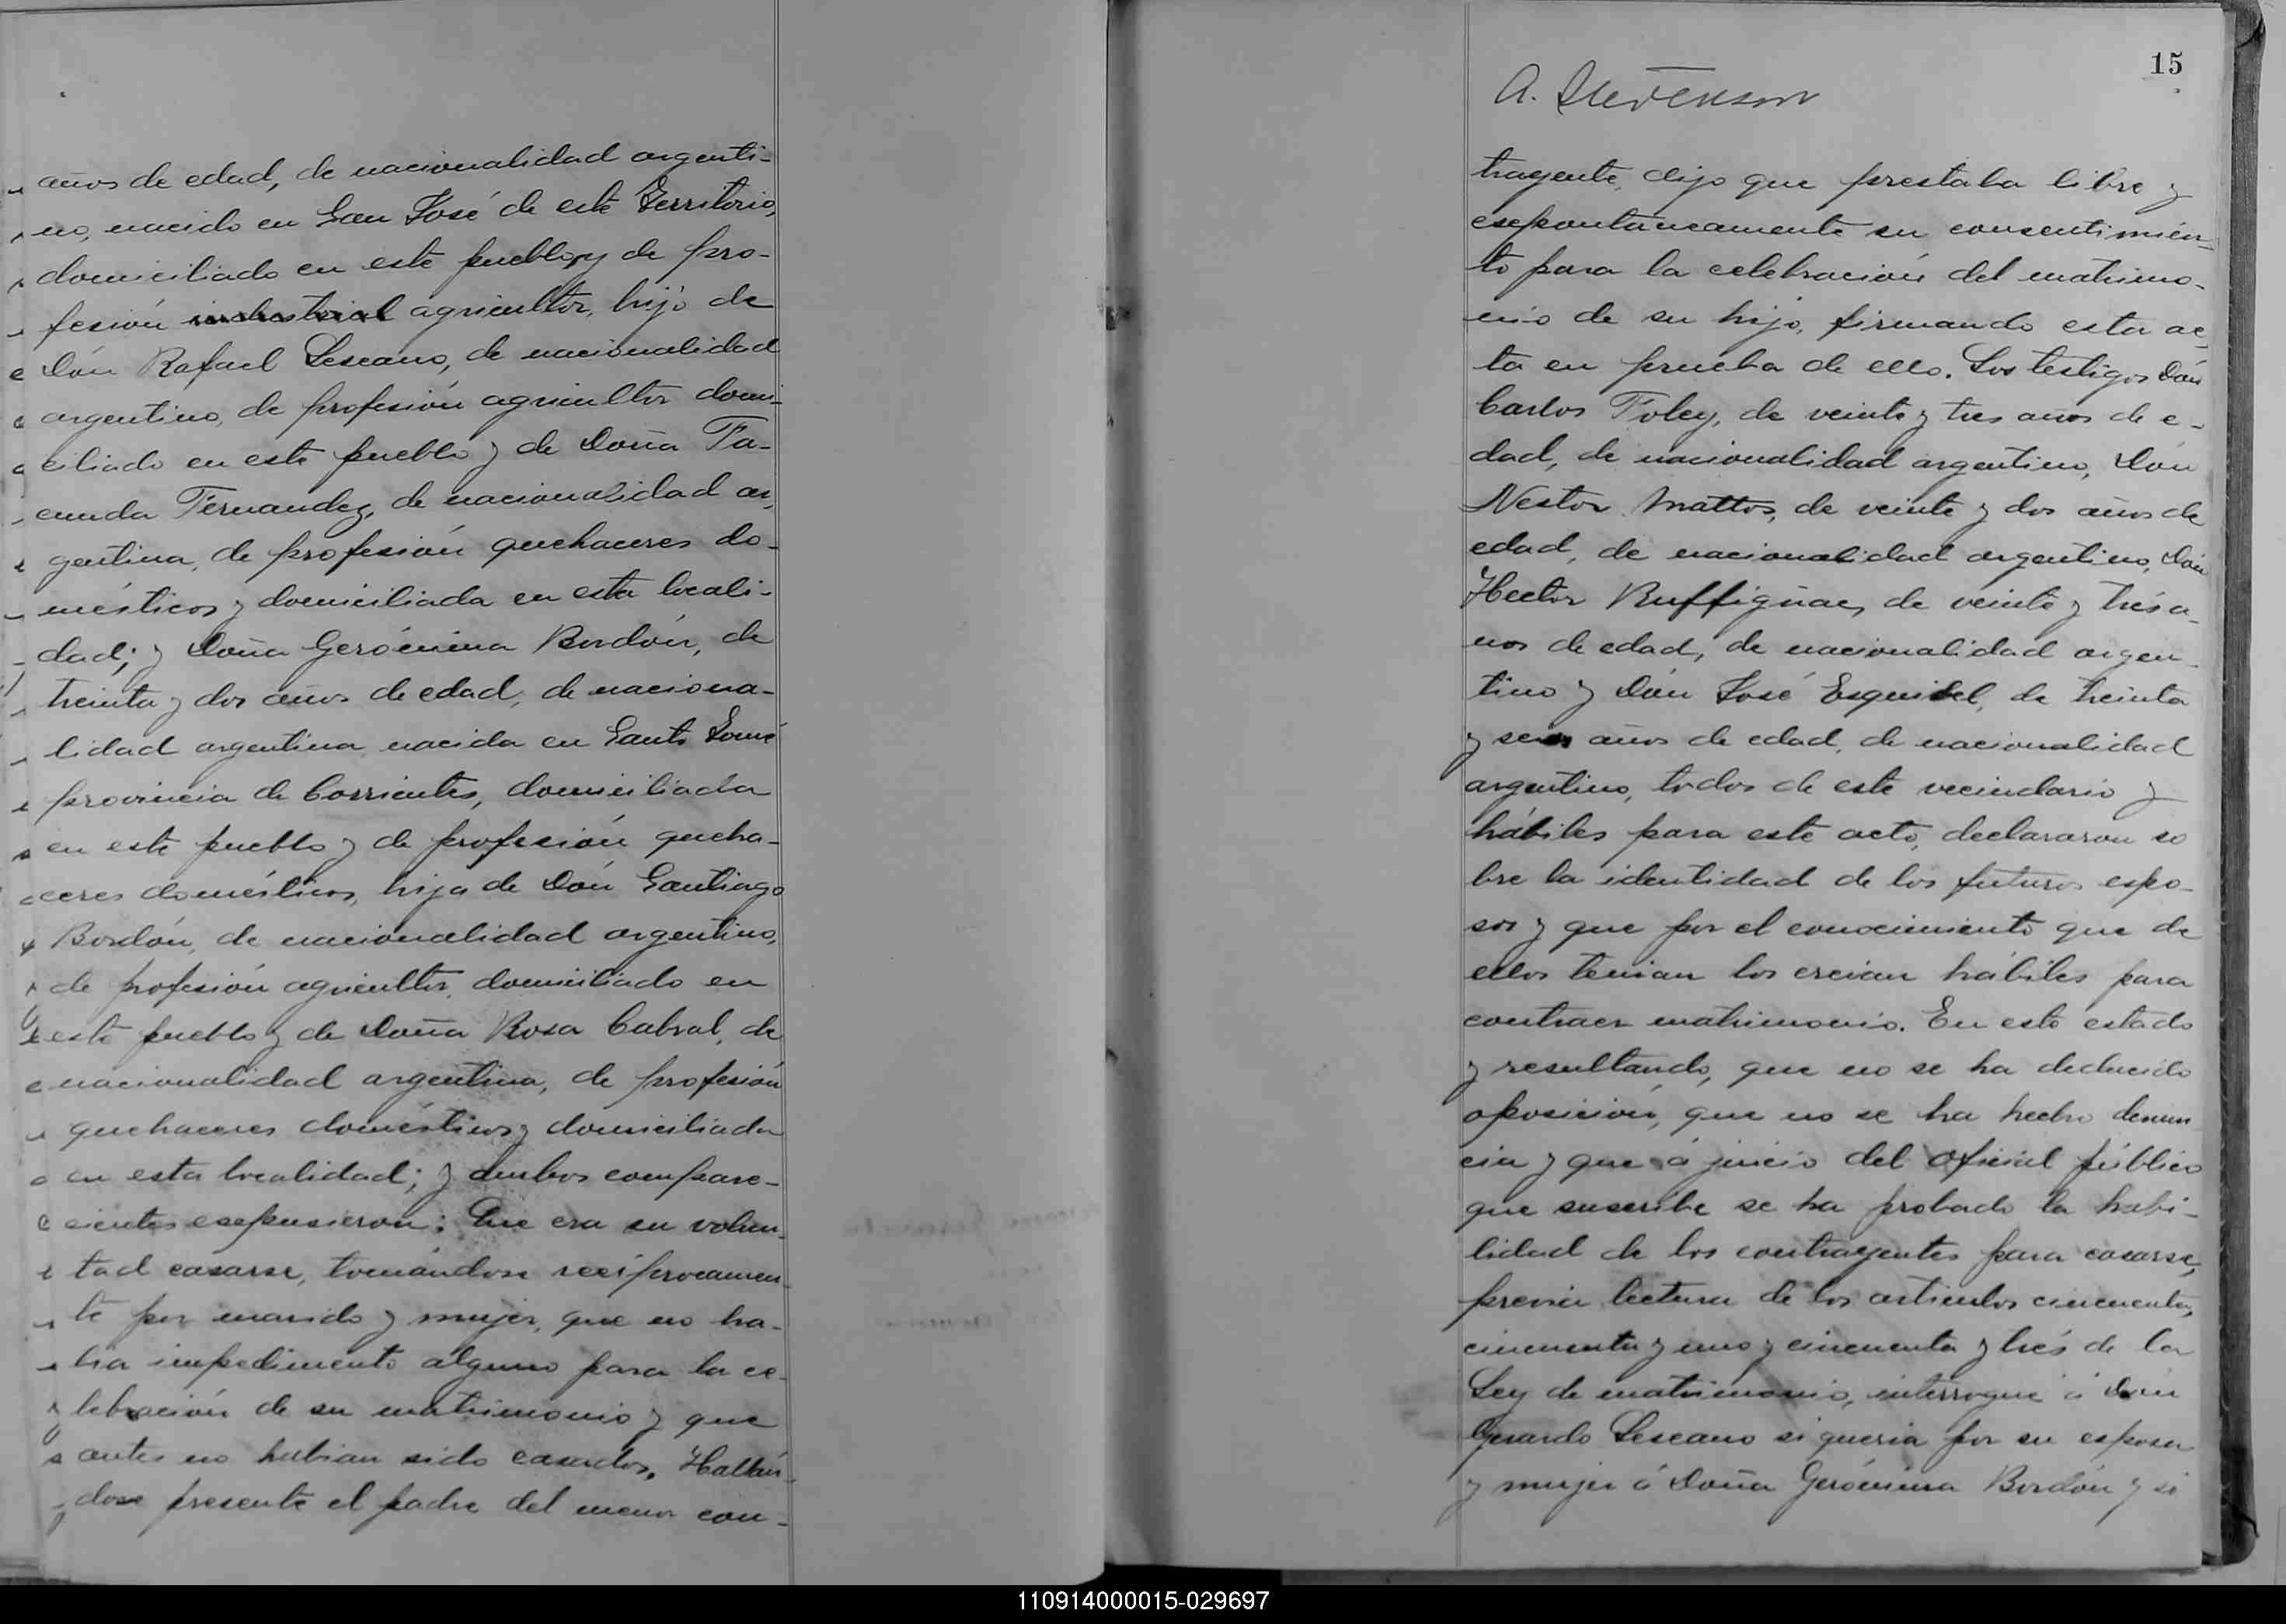 años de edad, de nacionalidad argenti-
no, nacido en San José de este Territorio,
domiciliado en este pueblo, y de pro-
fesión industrial agricultor, hijo de
Dón Rafael Lescano, de nacionalidad
argentino, de profesión agricultor domi-
ciliado en este pueblo y de Doña Fa-
cunda Fernandez, de nacionalidad ar-
gentina, de profesión quehaceres do-
mésticos y domiciliada en esta locali-
dad; y Doña Gerónima Bordón, de
treinta y dos años de edad, de naciona-
lidad argentina nacida en Santo Tomé
provincia de Corrientes, domiciliada
en este pueblo y de profesión queha-
ceres domésticos, hija de Dón Santiago
Bordón, de nacionalidad argentino,
de profesión agricultor, domiciliado en
este pueblo y de Doña Rosa Cabral, de
nacionalidad argentina, de profesión
quehaceres domésticos y domiciliada
en esta localidad; y ambos compare-
cientes esepusieron: Que era su volun-
tad casarse, tomándose recíprocamen-
te por marido y mujer, que no ha-
bia impedimento alguno para la ce-
lebración de su matrimonio y que
antes no habian sido casados. Hallán-
dose presente el padre del menor con-
15
A. Stevenson
trayente, dijo que prestaba libre y
esepontaneamente su consentimien-
to para la celebración del matrimo-
nio de su hijo, firmando esta ac-
ta en prueba de ello. Los testigos Dón
Carlos Foley, de veinte y tres años de e-
dad, de nacionalidad argentino, Dón
Nestor Mattos, de veinte y dos años de
edad, de nacionalidad argentino, Dón
Hector Ruffignac, de veinte y trés a-
ños de edad, de nacionalidad argen-
tino y Dón José Esquibel, de treinta
y seis años de edad, de nacionalidad
argentino, todos de este vecindario y
hábiles para este acto, declararon so
bre la identidad de los futuros espo-
sos y que por el conocimiento que de
ellos tenian los creian hábiles para
contraer matrimonio. En este estado
y resultando, que no se ha deducido
oposición, que no se ha hecho denun
cia y que á juicio del oficial público
que suscribe se ha probado la habi-
lidad de los contrayentes para casarse,
previa lectura de los articulos cincuenta,
cincuenta y uno y cincuenta y trés de la
Ley de matrimonio, interrogué á Dón
Gerardo Lescano si queria por su esposa
y mujer á Doña Gerónima Bordón y si
110914000015-029697